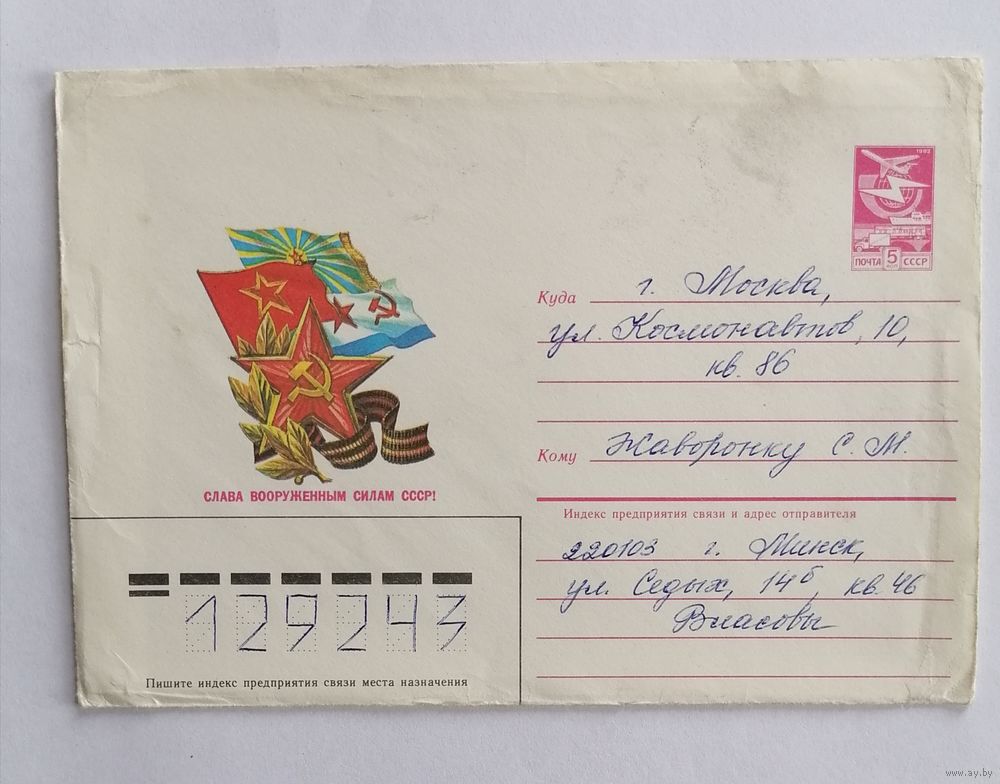 1982
ПОЧТА 5 КОП СССР
Куда г. Москва,
ул. Космонавтов, 10,
кв. 86
Кому Жаворонку С. М.
СЛАВА ВООРУЖЕННЫМ СИЛАМ СССР!
Индекс предприятия связи и адрес отправителя
220103 г. Минск,
ул. Седых, 14б, кв. 46
Власовы
129243
Пишите индекс предприятия связи места назначения
www.ay.by